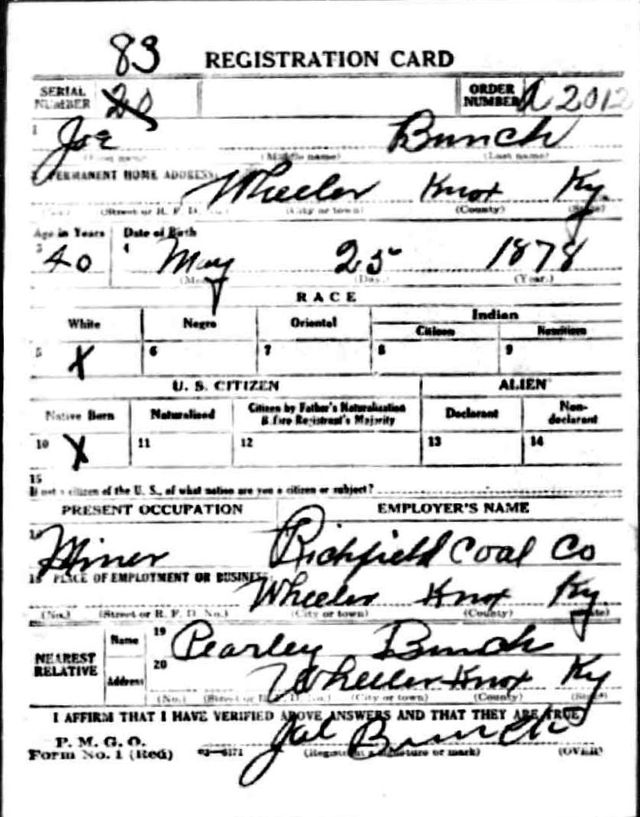 83
REGISTRATION CARD
SERIAL NUMBER 20 ORDER NUMBER A 2012
1 Joe Bunch
(First name) (Middle name) (Last name)
2 PERMANENT HOME ADDRESS: Wheeler Knox Ky.
(No.) (Street or R. F. D. No.) (City or town) (County) (State)
Age in Years Date of Birth
3 40 4 May 25 1878
(Month.) (Day.) (Year.)
RACE
White Negro Oriental Indian
Citizen Noncitizen
5 X 6 7 8 9
U. S. CITIZEN ALIEN
Native Born Naturalized Citizen by Father's Naturalization Before Registrant's Majority Declarant Non-declarant
10 X 11 12 13 14
15
If not a citizen of the U. S., of what nation are you a citizen or subject?
PRESENT OCCUPATION EMPLOYER'S NAME
16 Miner Richfield Coal Co
18 PLACE OF EMPLOYMENT OR BUSINESS: Wheeler Knox Ky.
(No.) (Street or R. F. D. No.) (City or town) (County) (State)
NEAREST RELATIVE Name 19 Pearley Bunch
Address 20 Wheeler Knox Ky
(No.) (Street or R. F. D. No.) (City or town) (County) (State)
I AFFIRM THAT I HAVE VERIFIED ABOVE ANSWERS AND THAT THEY ARE TRUE
P. M. G. O.
Form No. 1 (Red) 03—6171 Joe Bunch
(Registrant's signature or mark) (OVER)